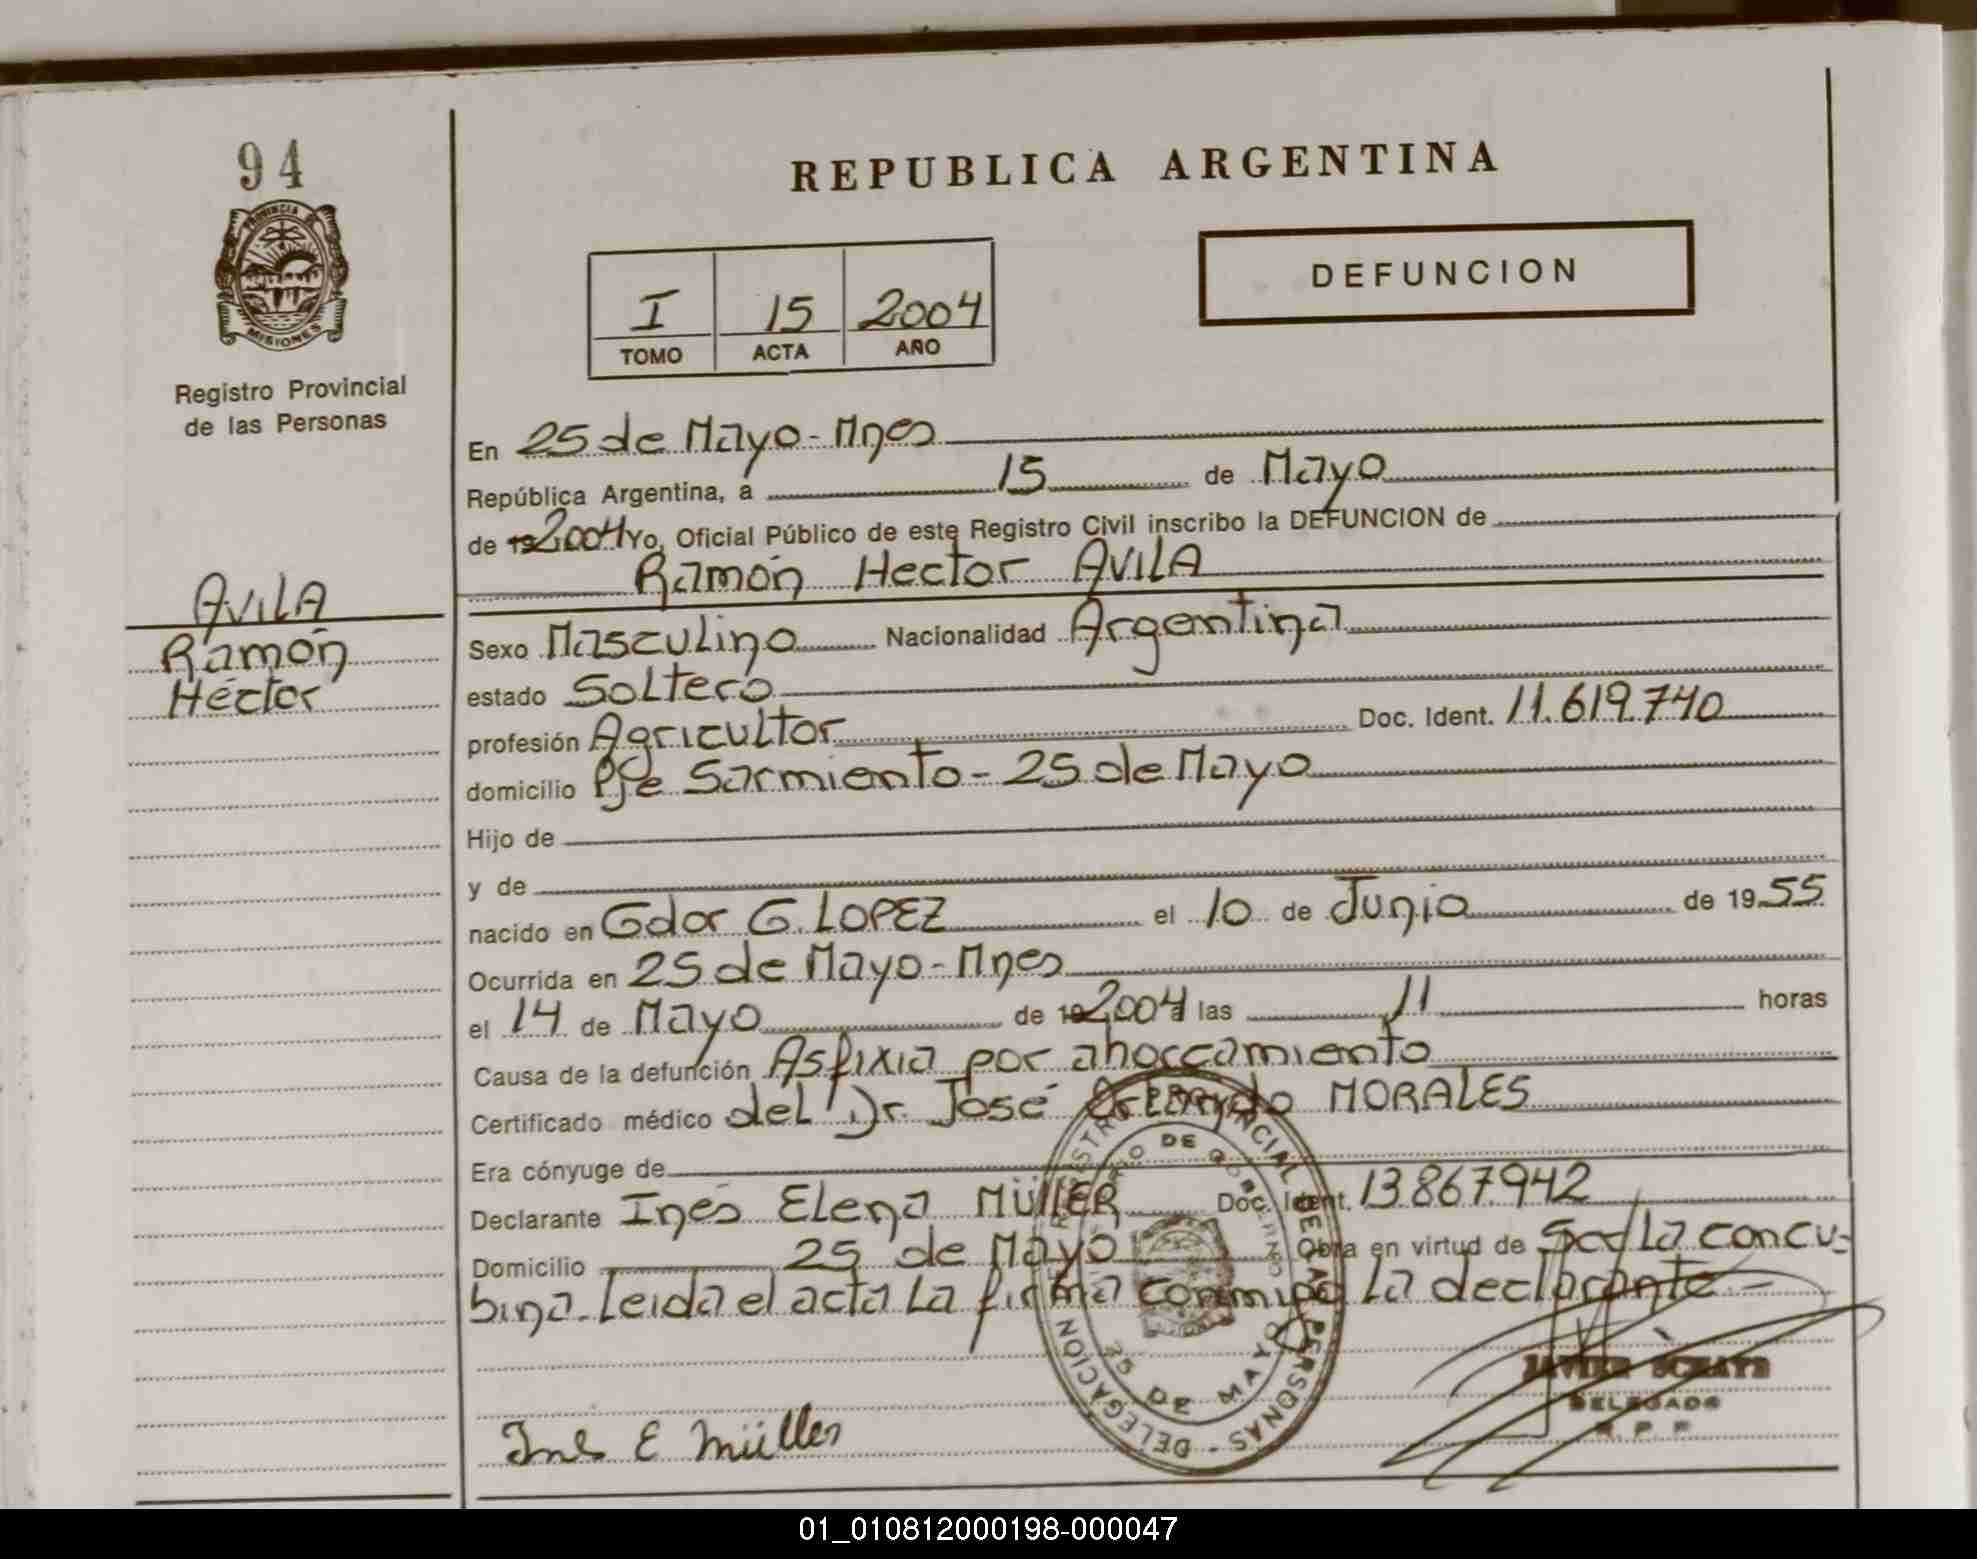 94
PROVINCIA DE
MISIONES
Registro Provincial
de las Personas
AVILA
Ramón
Héctor
REPUBLICA ARGENTINA
I 15 2004
TOMO ACTA AÑO
DEFUNCION
En 25 de Mayo - Mnes
República Argentina, a 15 de Mayo
de 19 2004 Yo, Oficial Público de este Registro Civil inscribo la DEFUNCION de
Ramón Hector AVILA
Sexo Masculino Nacionalidad Argentina
estado Soltero
profesión Agricultor Doc. Ident. 11.619.740
domicilio Pje Sarmiento - 25 de Mayo
Hijo de
y de
nacido en Gdor G. LOPEZ el 10 de Junio de 1955
Ocurrida en 25 de Mayo - Mnes
el 14 de Mayo de 19 2004 a las 11 horas
Causa de la defunción Asfixia por ahorcamiento
Certificado médico del Dr. José MORALES
Era cónyuge de
Declarante Inés Elena MÜLLER Doc. Ident. 13.867.942
Domicilio 25 de Mayo Obra en virtud de Ser La concu-
bina. Leida el acta La firma conmigo La declarante -
REGISTRO PROVINCIAL DE LAS PERSONAS - DELEGACION
25 DE MAYO
Ines E Müller
JAVIER
DELEGADO
R. P. P.
01_010812000198-000047